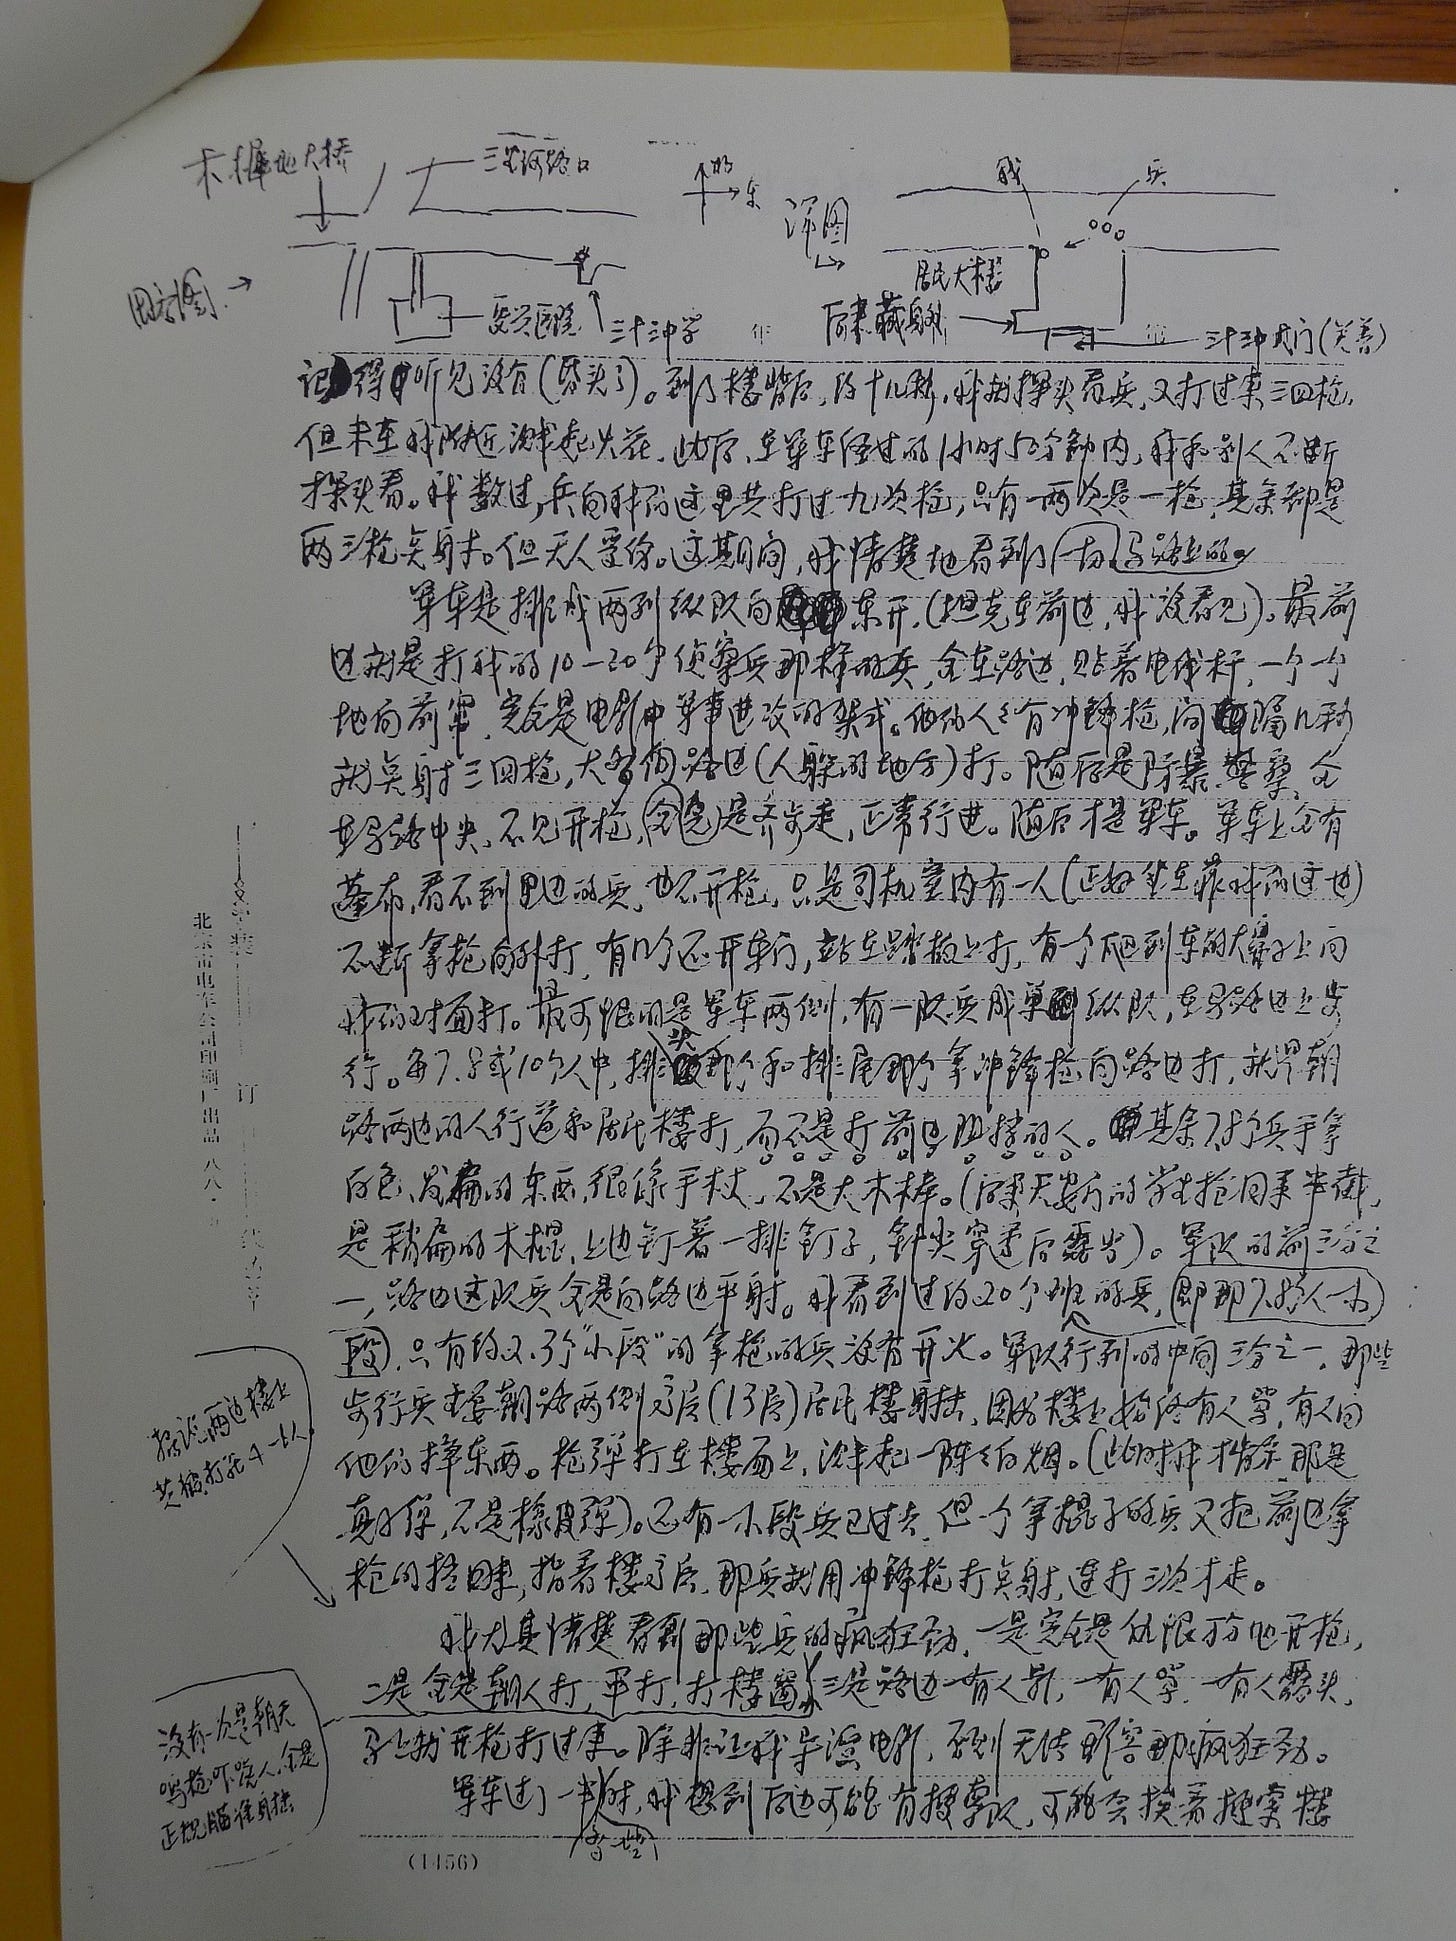 木樨地大桥
三里河路口
北
东
详图
我
兵
居民大楼
后来藏身处
三十三中大门(关着)
复兴医院
三十三中学
记得听见没有(昏头了)。到了楼背后,约十几秒,我就探头看兵,又打过来三四枪,
但未在我附近溅起火花。此后,在军车经过的1小时50分钟内,我和别人不断
探头看。我数过,兵向我们这里共打过九次枪,只有一两次是一枪,其余都是
两三枪点射。但无人受伤。这期间,我清楚地看到了一切马路上的。
军车是排成两列纵队向东开,(坦克在前边,我没看见)。最前
边就是打我的10—20个侦察兵那样的兵,全在路边,贴着电线杆,一个一个
地向前窜,完全是电影中军事进攻的架式。他们人人有冲锋枪,间隔几秒
就点射三四枪,大多向路边(人躲的地方)打。随后是防暴警察,全
在马路中央,不见开枪,全是齐步走,正常行进。随后才是军车。军车上全有
蓬布,看不到里边的兵,也不开枪,只是司机室内有一人(正好坐在靠我们这边)
不断拿枪向外打,有几个还开车门,站在踏板上打,有一个爬到车的大
我们对面打。最可恨的是军车两侧,有一队兵成单纵队,在马路边上步
行。每7.8或10个人中,排头那个和排尾那个拿冲锋枪向路边打,就是朝
路两边的人行道和居民楼打,而不是打前边阻挡的人。其余7.8个兵手拿
白色、发扁的东西,很像手杖,不是大木棒。(后来天安门的学生抢回来半截,
是稍扁的木棍,上边钉着一排钉子,钉尖穿透后露出)。军队的前三分之
一,路边这队兵全是向路边平射。我看到过约20个班的兵,即那7.8个人一小
段,只有约2.3个“小段”的拿枪的兵没有开火。军队行列的中间三分之一,那些
步行兵主要朝路两侧高层(13层)居民楼射击,因为楼上始终有人骂,有人向
他们摔东西。枪弹打在楼面上,溅起一阵阵白烟。(此时我才确信,那是
真子弹,不是橡皮弹)。还有一小段兵已过去,但一个拿棍子的兵又把前边拿
枪的拉回来,指着楼高层,那兵就用冲锋枪打点射,连打三次才走。
据说,两边楼上
共被打死4一6人。
我尤其清楚看到那些兵的疯狂劲,一是完全是仇恨万分地开枪,
二是全是朝人打,平打,打楼窗,三是路边一有人影,一有人骂,一有人露头,
马上就开枪打过来。除非让我导演电影,否则无法形容那疯狂劲。
没有一次是朝天
鸣枪吓唬人,全是
正规瞄准射击
军车过了一半时,我想到后边可能有搜索队,可能会挨着搜索楼
(1456)
装
订
线
北京市电车公司印刷厂出品 八八·